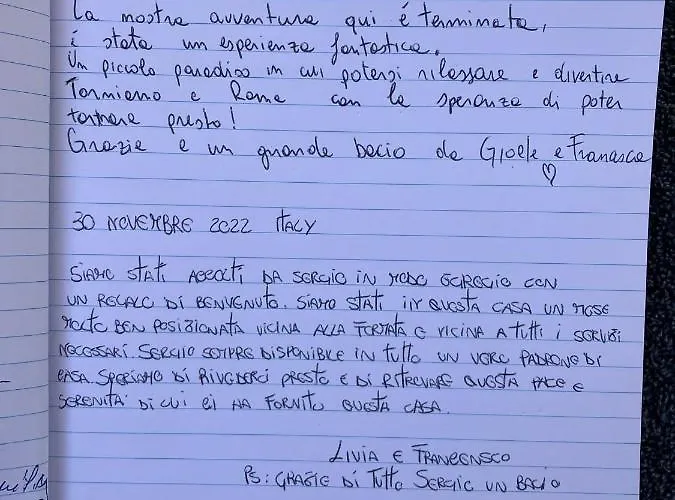 La nostra avventura qui è terminata,
è stata un esperienza fantastica.
Un piccolo paradiso in cui potersi rilassare e divertire
Torniamo a Roma con la speranza di poter
tornare presto!
Grazie e un grande bacio da Gioele e Francesca
30 NOVEMBRE 2022 ITALY
SIAMO STATI ACCOLTI DA SERGIO IN MODO EGREGIO CON
UN REGALO DI BENVENUTO. SIAMO STATI IN QUESTA CASA UN MESE
MOLTO BEN POSIZIONATA VICINA ALLA FERMATA E VICINA A TUTTI I SERVIZI
NECESSARI. SERGIO SEMPRE DISPONIBILE IN TUTTO UN VERO PADRONE DI
CASA. SPERIAMO DI RIVEDERCI PRESTO E DI RITROVARE QUESTA PACE E
SERENITÀ DI CUI CI HA FORNITO QUESTA CASA.
LIVIA E FRANCENSCO
PS: GRAZIE DI TUTTO SERGIO UN BACIO